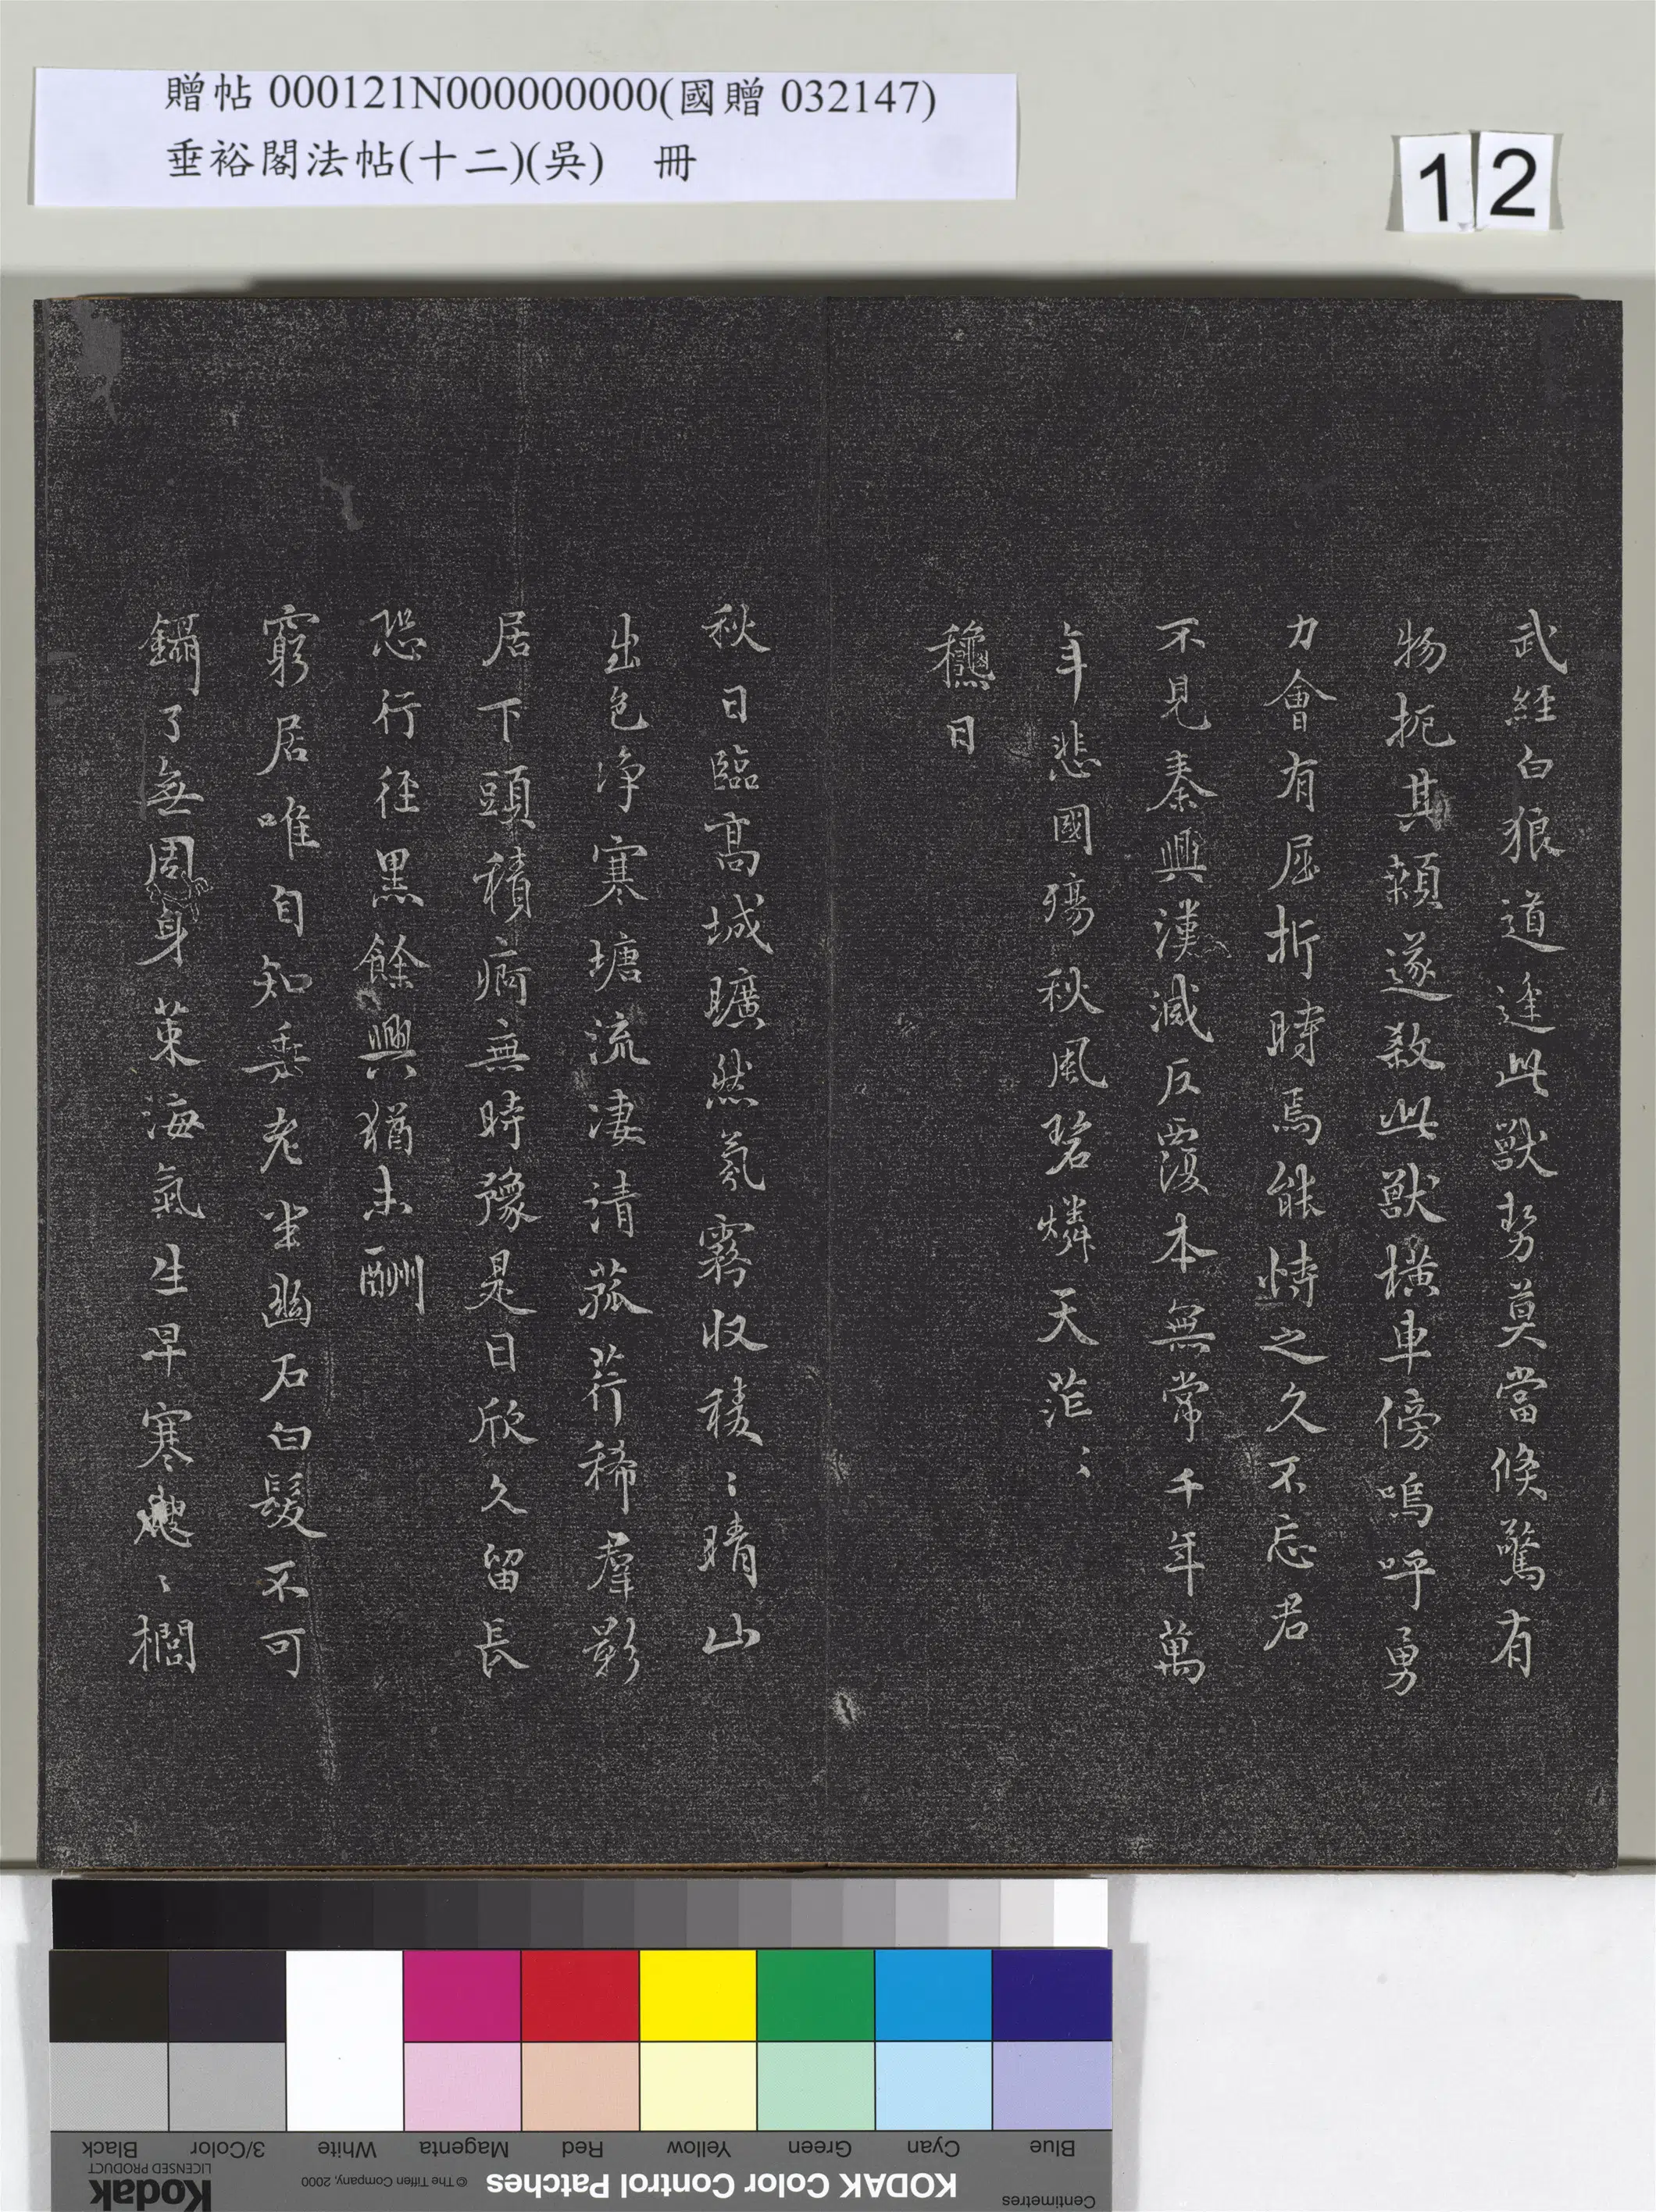 贈帖 000121N000000000(國贈 032147)
垂裕閣法帖(十二)(吳) 冊
12
武經白狼道逢此獸勢莫當倏驚有
物扼其顙遂殺此獸橫車傍嗚呼勇
力會有屈折時焉能恃之久不忘君
不見秦興漢滅反覆本無常千年萬
年悲國殤秋風碧燐天茫〻
龝日
秋日臨高城曠然氛霧收稜〻晴山
出色淨寒塘流淒清菰荇稀羣影
居下頭積痾無時豫是日欣久留長
恐行徑黑餘興猶未酬
窮居唯自知垂老坐幽石白髮不可
鑷了無周身策海氣生早寒〻櫚
Black 3/Color White Magenta Red Yellow Green Cyan Blue
Kodak
LICENSED PRODUCT
© The Tiffen Company, 2000
KODAK Color Control Patches
Centimetres